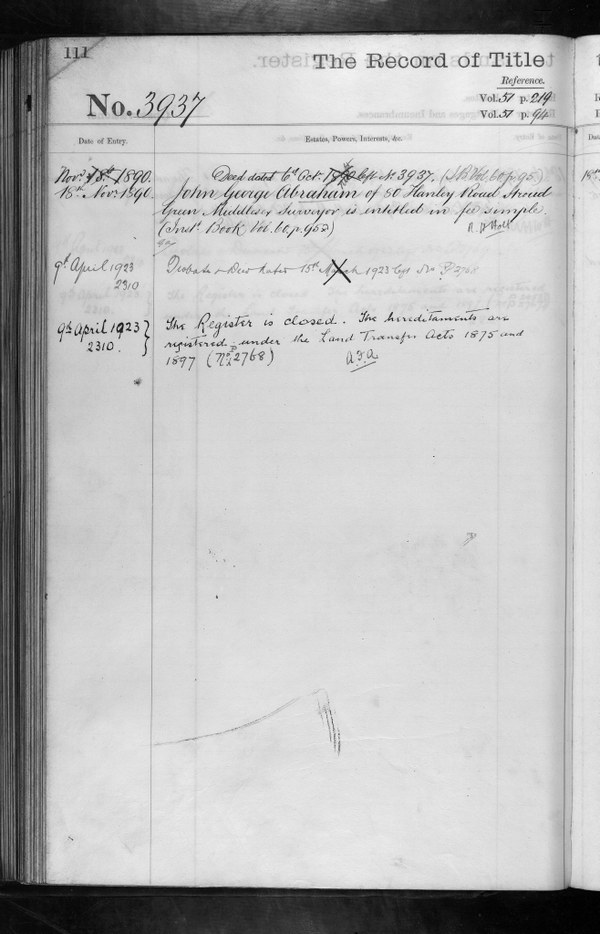 111
The Record of Title
Reference.
No. 3937
Vol. 51 p. 219
Vol. 51 p. 94
Date of Entry.
Estates, Powers, Interests, &c.
Novr. 18th 1890.
Deed dated 6th Octr. Cft. No 3937. (I.B. Vol. 60 p. 95.)
18th Novr. 1890.
John George Abraham of 80 Hanley Road Stroud
Green Middlesex Surveyor is entitled in fee simple.
(Inst. Book Vol. 60, p. 952)
9th April 1923
2310
Probate 15th March 1923 Cft No 2768
9th April 1923 }
2310.
The Register is closed. The hereditaments are
registered under the Land Transfer Acts 1875 and
1897 (No. 2768)
A.F.A.